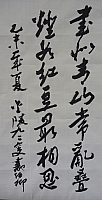 書似青山常亂疊
燈如紅豆最相思
乙未年夏